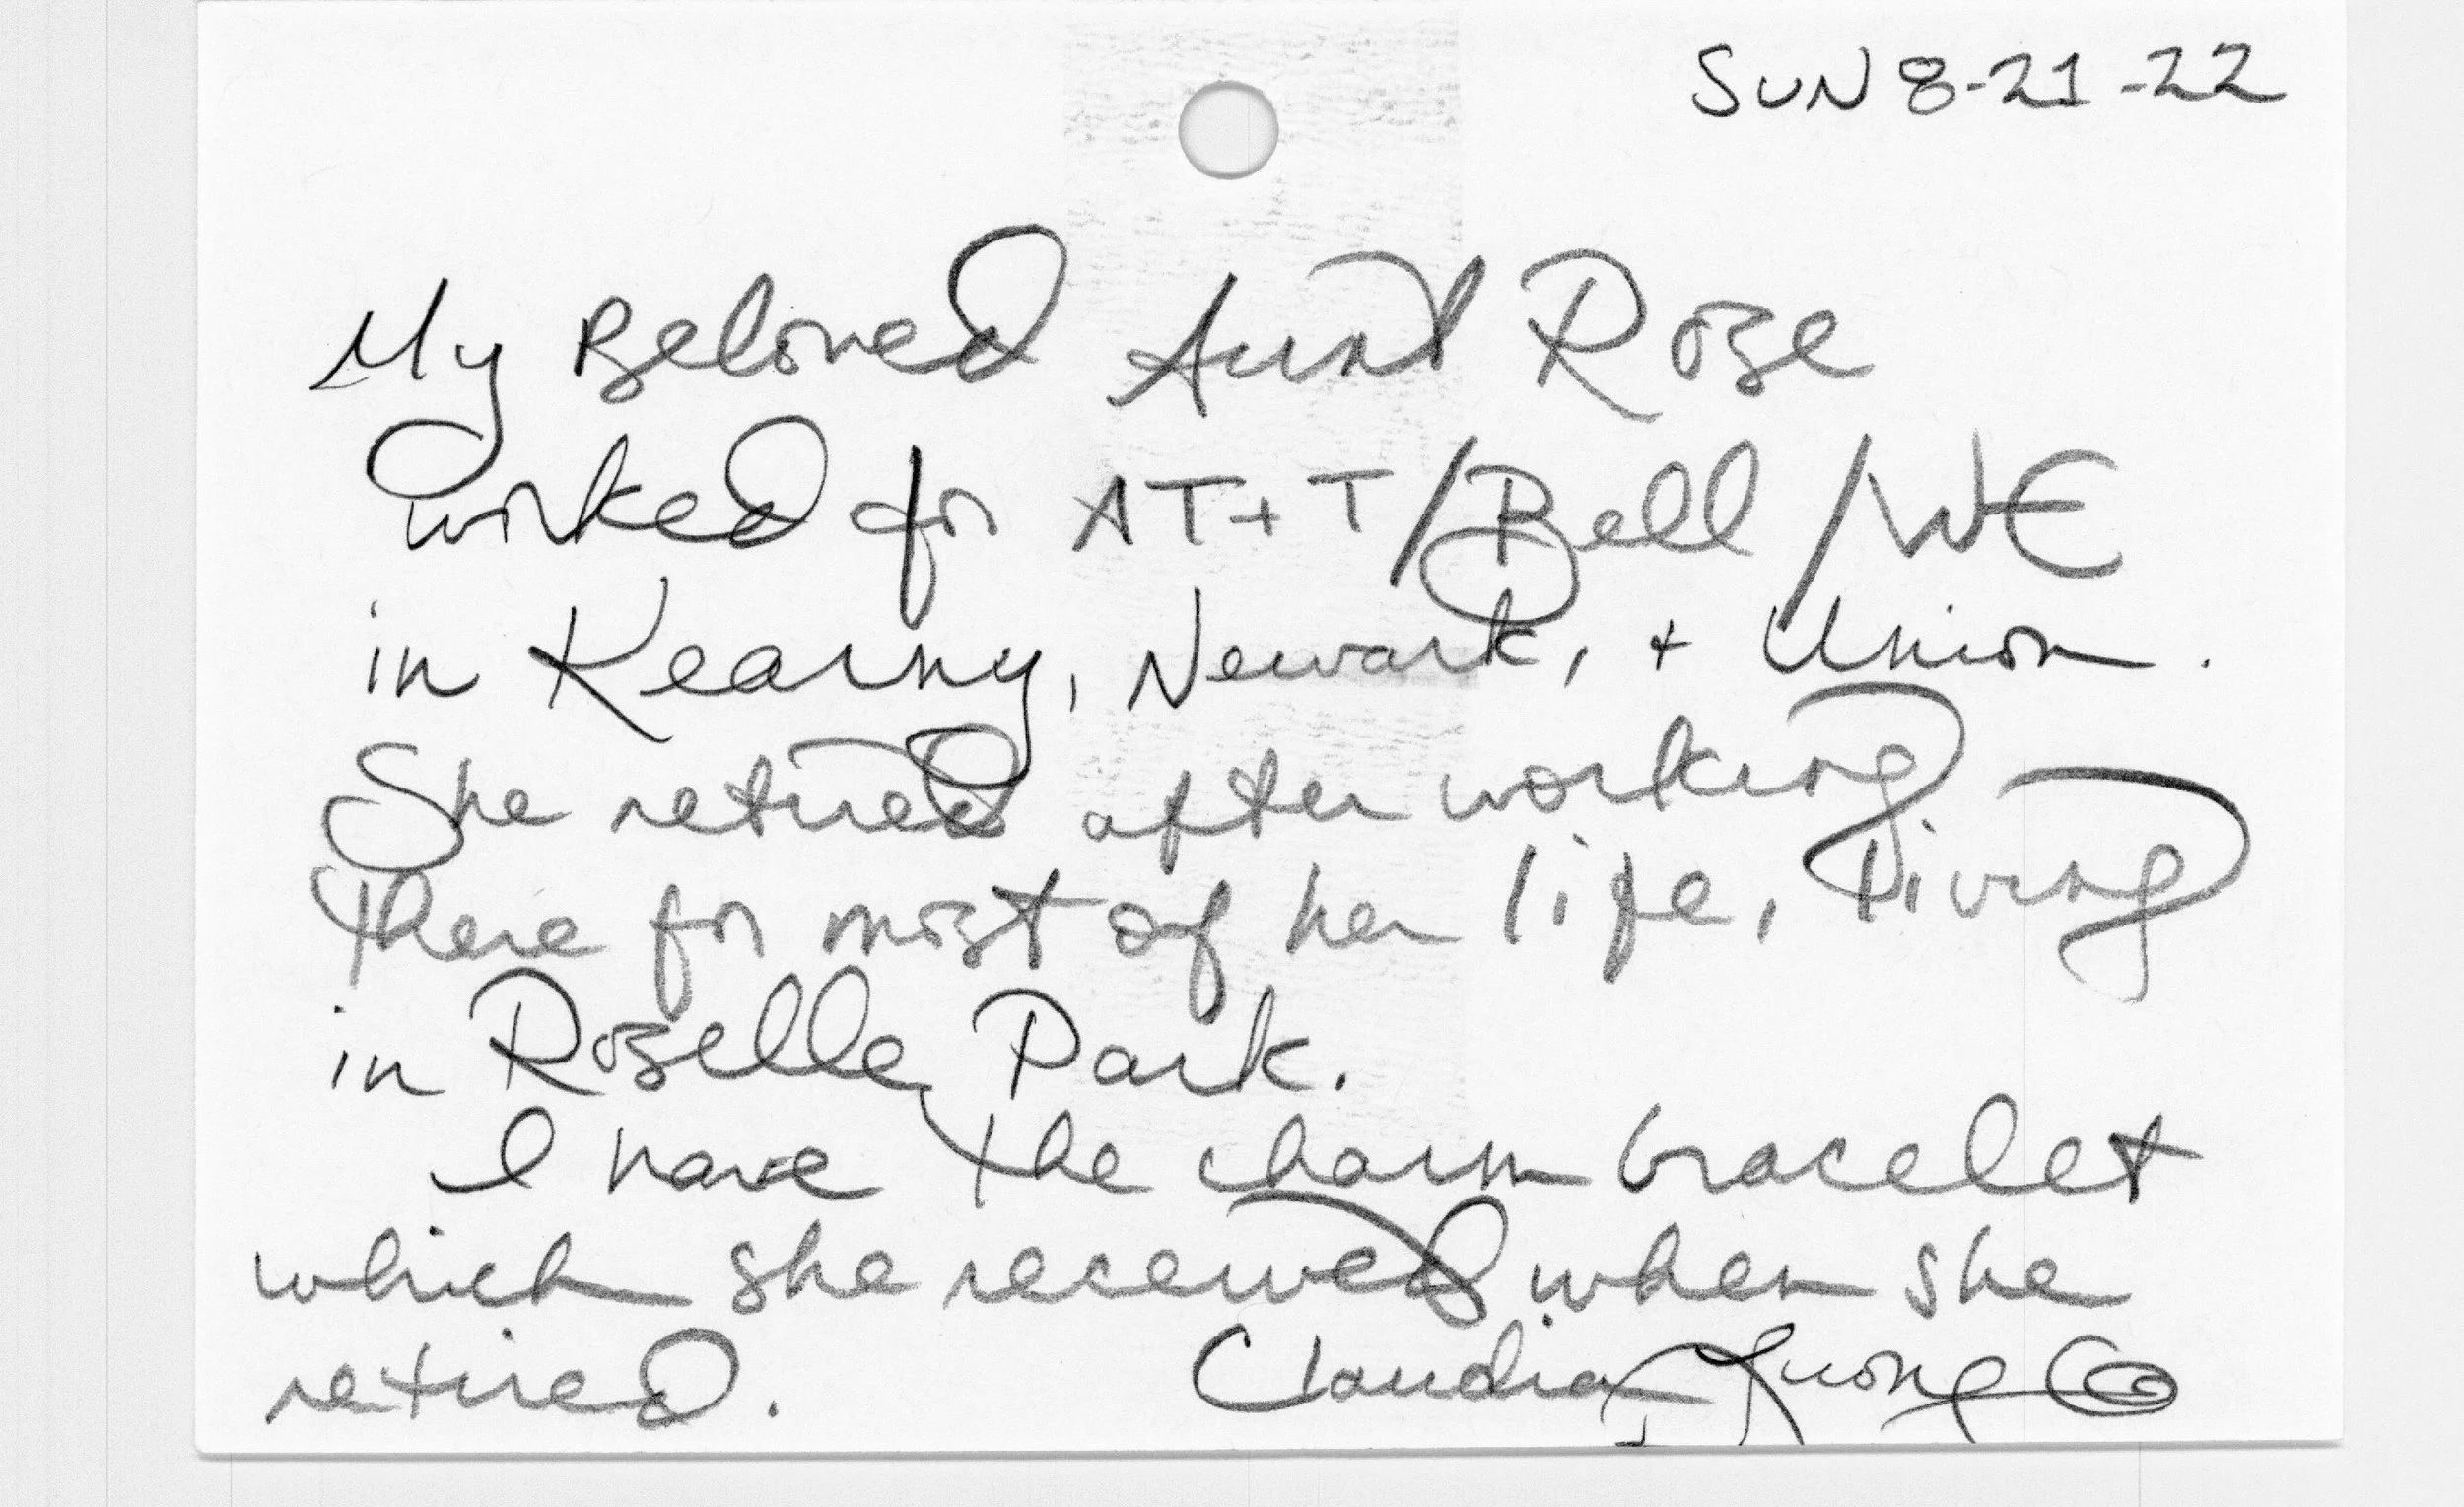 SUN 8-21-22
My Beloved Aunt Rose
worked for AT+T/Bell/WE
in Kearny, Newark, + Union.
She retired after working
there for most of her life, living
in Roselle Park.
I have the charm bracelet
which she received when she
retired. Claudia